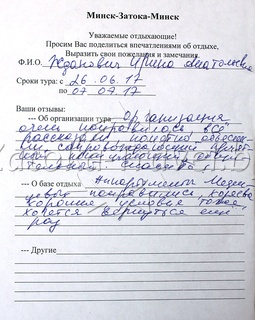 Минск-Затока-Минск
Уважаемые отдыхающие!
Просим Вас поделиться впечатлениями об отдыхе,
Выразить свои пожелания и замечания.
Ф.И.О. Жданович Ирина Анатольевна
Сроки тура: с 26.06.17
по 07.07.17
Ваши отзывы:
--- Об организации тура организация
очень понравилась все
рассказали понятно объясни
ли, сопровождающая
--- О базе отдыха Аппартаменты
понравились, корпус
хороший, условия тоже,
хочется вернуться еще
раз
--- Другие